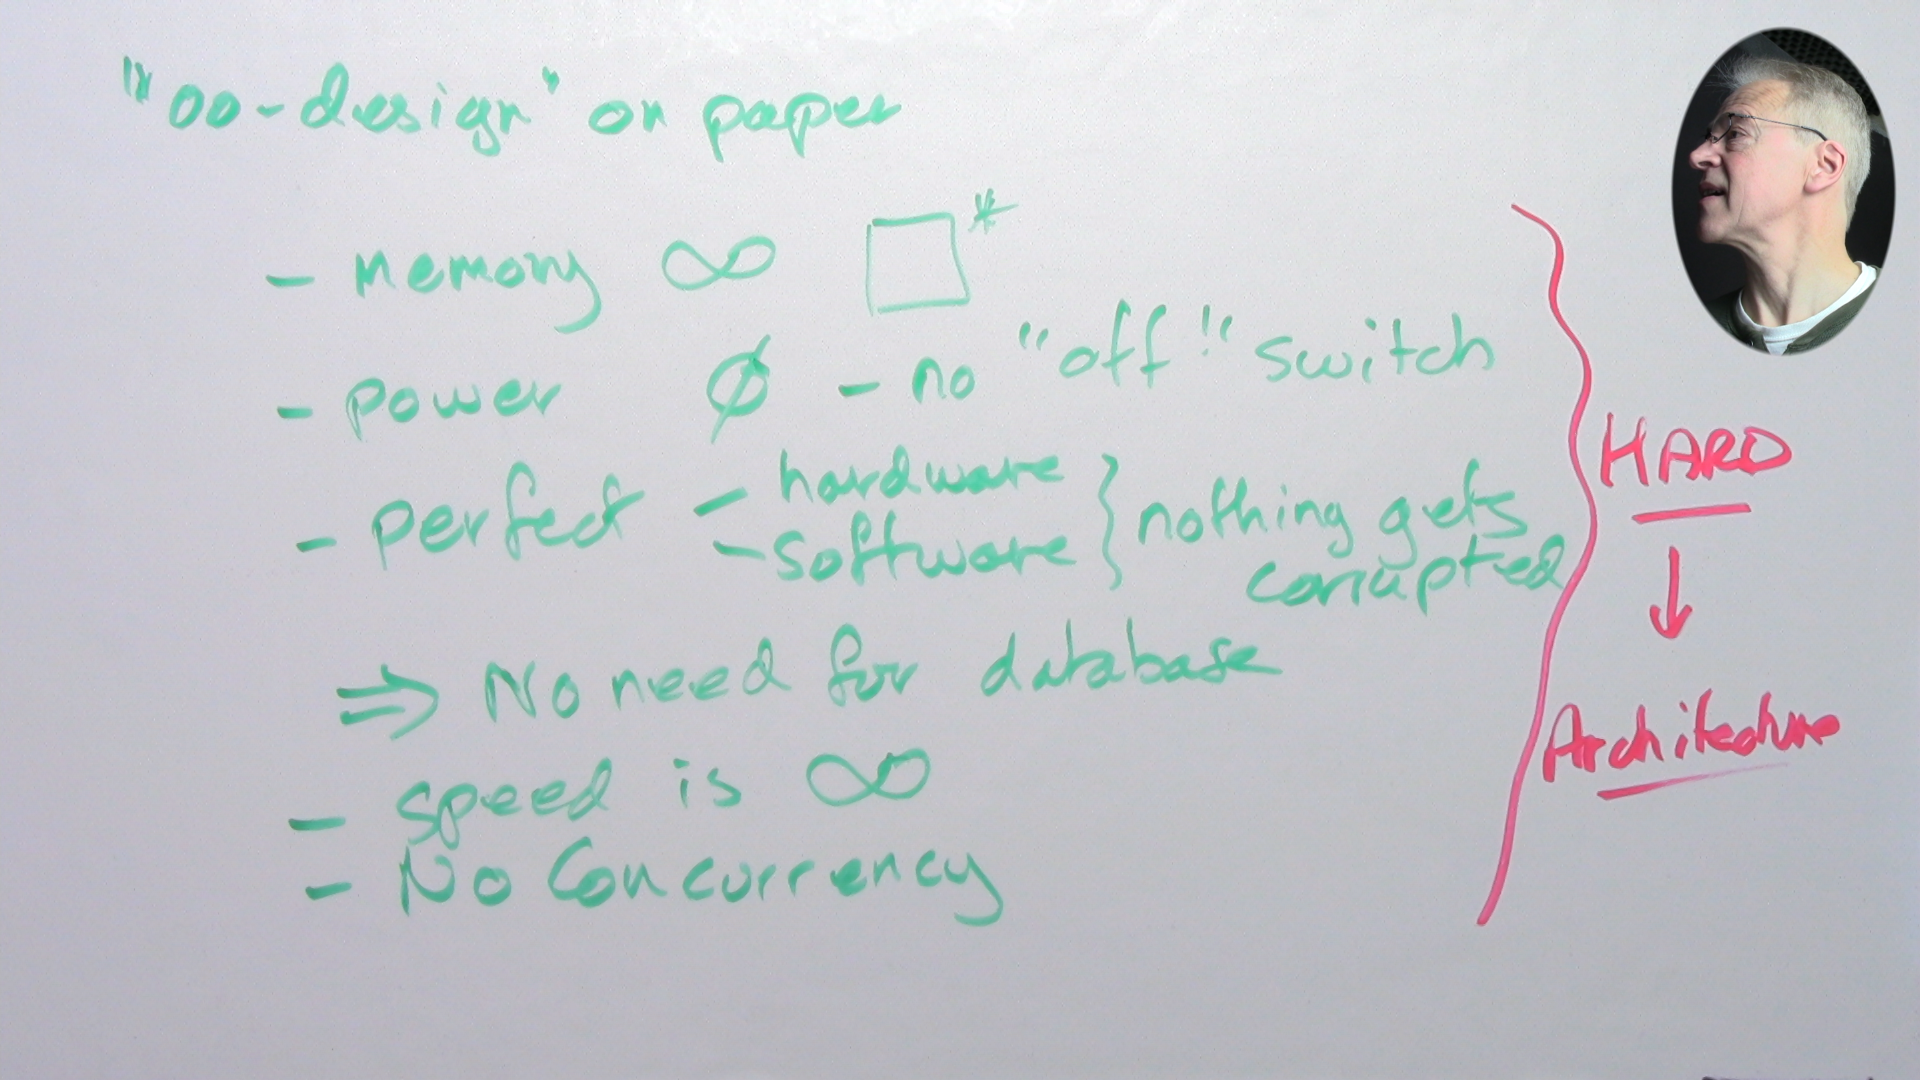 "OO-design" on paper
- Memory ∞ □*
- power ∅ - no "off!" switch
- perfect - hardware
- software } nothing gets corrupted
⇒ No need for database
- speed is ∞
- No Concurrency
HARD
↓
Architecture